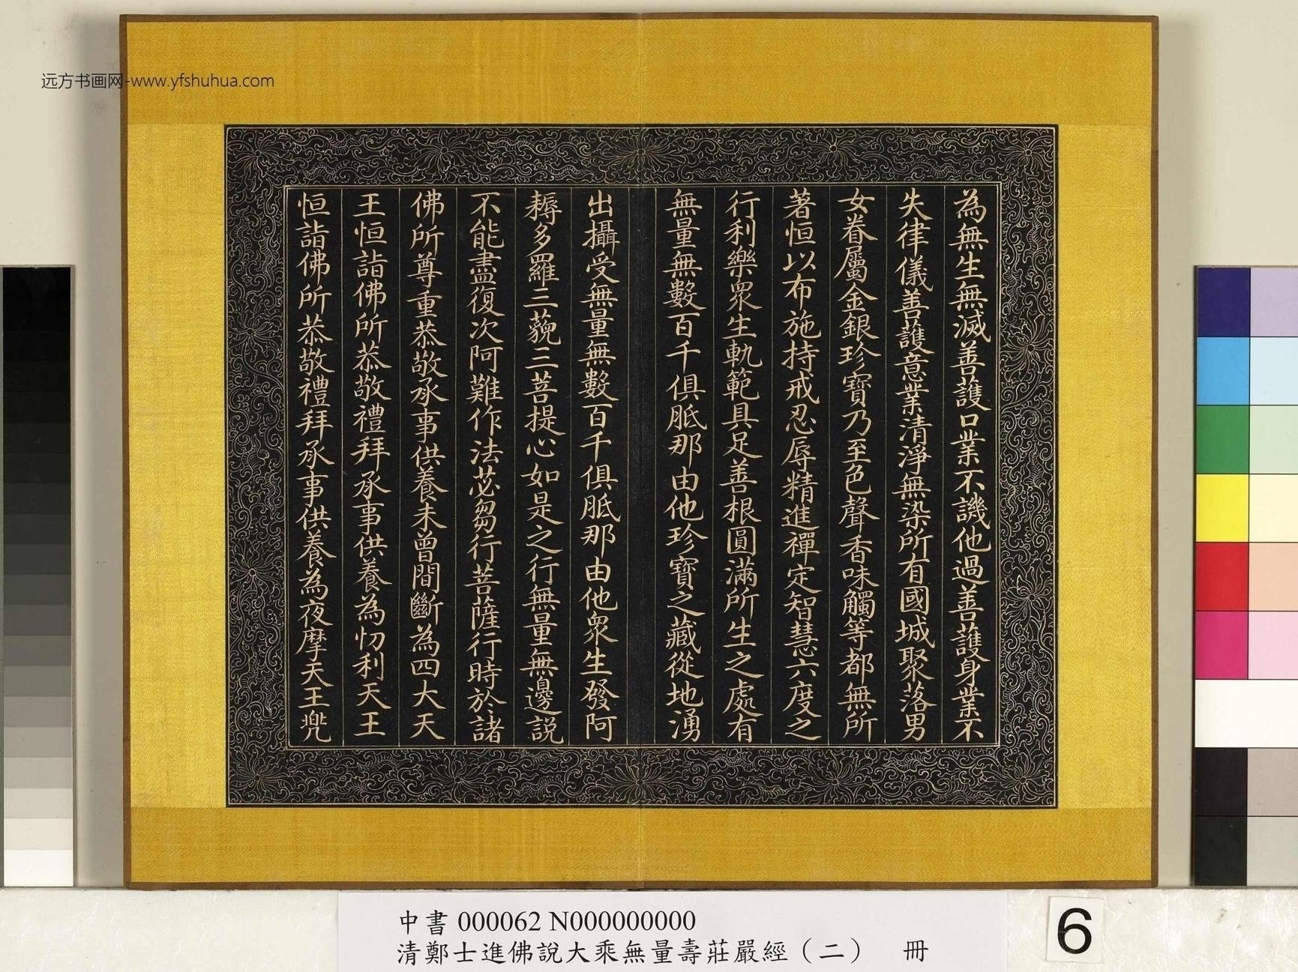 远方书画网-www.yfshuhua.com
為無生無滅善護口業不譏他過善護身業不
失律儀善護意業清淨無染所有國城聚落男
女眷屬金銀珍寶乃至色聲香味觸等都無所
著恒以布施持戒忍辱精進禪定智慧六度之
行利樂眾生軌範具足善根圓滿所生之處有
無量無數百千俱胝那由他珍寶之藏從地湧
出攝受無量無數百千俱胝那由他眾生發阿
耨多羅三藐三菩提心如是之行無量無邊説
不能盡復次阿難作法苾芻行菩薩行時於諸
佛所尊重恭敬承事供養未曾間斷為四大天
王恒詣佛所恭敬禮拜承事供養為忉利天王
恒詣佛所恭敬禮拜承事供養為夜摩天王兜
中書 000062 N000000000
清鄭士進佛說大乘無量壽莊嚴經（二） 冊
6